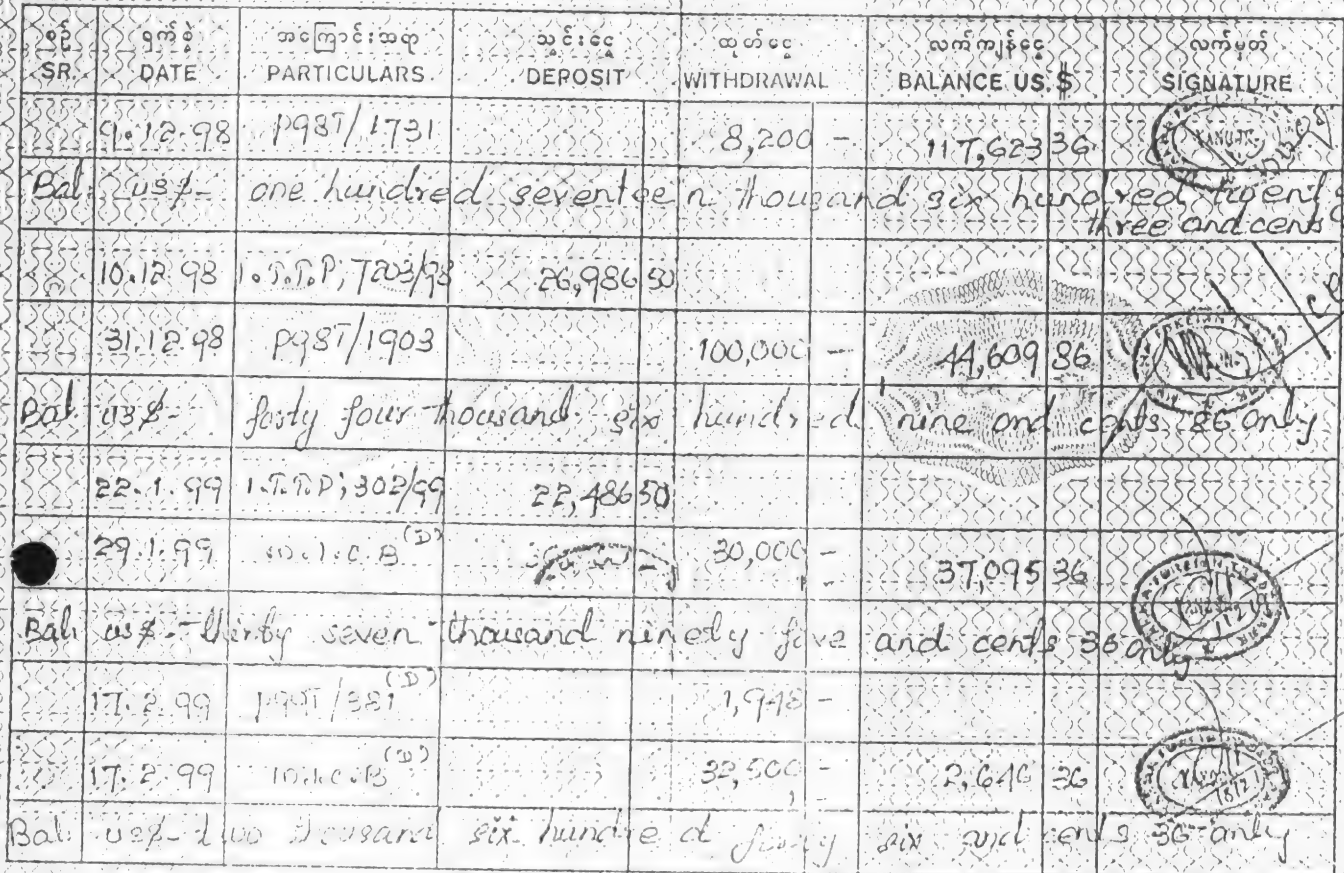 စဉ် ရက်စွဲ အကြောင်းအရာ သွင်းငွေ ထုတ်ငွေ လက်ကျန်ငွေ လက်မှတ်
SR. DATE PARTICULARS DEPOSIT WITHDRAWAL BALANCE US.$ SIGNATURE
9.12.98 P98T/1731 8,200 - 117,623 36
Bal: US$- one hundred seventeen thousand six hundred twenty
three and cents
10.12.98 I.T.T.P; 7203/98 26,986 50
31.12.98 P98T/1903 100,000 - 44,609 86
Bal: US$- forty four thousand six hundred nine and cents 86 only
22.1.99 I.T.T.P; 302/99 22,486 50
29.1.99 (D) 30,000 - 37,095 36
Bal: US$- thirty seven thousand ninety five and cents 36 only
17.2.99 P99T/381 (D) 1,948 -
17.2.99 (D) 32,500 - 2,646 36
Bal: US$- two thousand six hundred forty six and cents 36 only